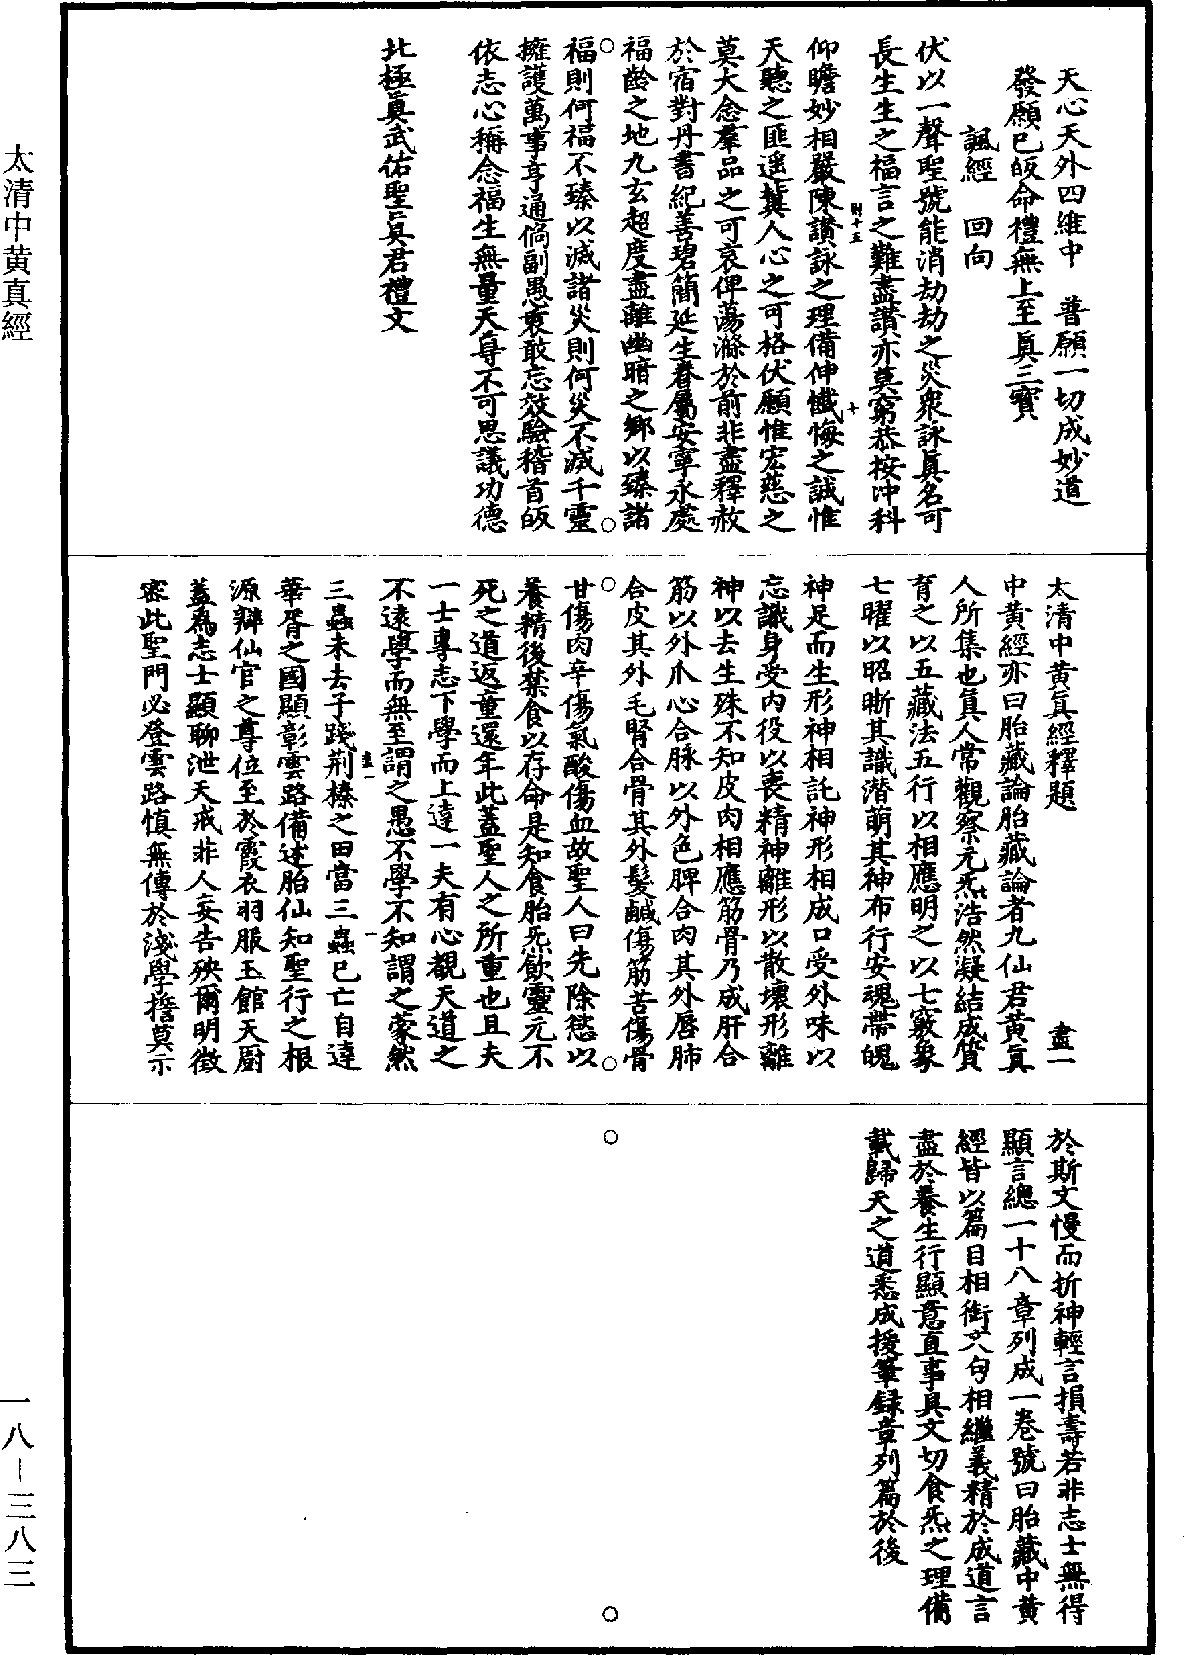 天心天外四維中　普願一切成妙道
發願已皈命禮無上至眞三寶
諷經　回向
伏以一聲聖號能消劫劫之災衆詠眞名可
長生生之福言之難盡讃亦莫窮恭按冲科
仰瞻妙相嚴陳讃詠之理備伸懺悔之誠惟
天聽之匪遥冀人心之可格伏願惟宏慈之
莫大念羣品之可哀俾蕩滌於前非盡釋赦
於宿對丹書紀善碧簡延生眷屬安寧永處
福齡之地九玄超度盡離幽暗之鄉以臻諸
福則何福不臻以滅諸災則何災不滅千靈
擁護萬事亨通倘副愚衷敢忘效驗稽首皈
依志心稱念福生無量天尊不可思議功德
北極眞武佑聖眞君禮文
太清中黄眞經釋題　盡一
中黄經亦曰胎藏論胎藏論者九仙君黄眞
人所集也眞人常觀察元炁浩然凝結成質
育之以五藏法五行以相應明之以七竅象
七曜以昭晰其識潛萌其神布行安魂帶魄
神足而生形神相託神形相成口受外味以
忘識身受内役以喪精神離形以散壞形離
神以去生殊不知皮肉相應筋骨乃成肝合
筋以外爪心合脉以外色脾合肉其外唇肺
合皮其外毛腎合骨其外髮鹹傷筋苦傷骨
甘傷肉辛傷氣酸傷血故聖人曰先除慾以
養精後禁食以存命是知食胎炁飲靈元不
死之道返童還年此蓋聖人之所重也且夫
一士專志下學而上達一夫有心覩天道之
不遠學而無至謂之愚不學不知謂之蒙然
三蟲未去子踐荆榛之田當三蟲已亡自達
華胥之國顯彰雲路備述胎仙知聖行之根
源辯仙官之尊位至於霞衣羽服玉館天厨
蓋爲志士顯聊泄天戒非人妄告殃爾明徵
密此聖門必登雲路慎無傳於淺學誓莫示
於斯文慢而折神輕言損壽若非志士無得
顯言總一十八章列成一卷號曰胎藏中黄
經皆以篇目相銜文句相繼義精於成道言
盡於養生行顯意直事具文切食炁之理備
載歸天之道悉成授筆録章列篇於後
太清中黄真經
一八—三八三